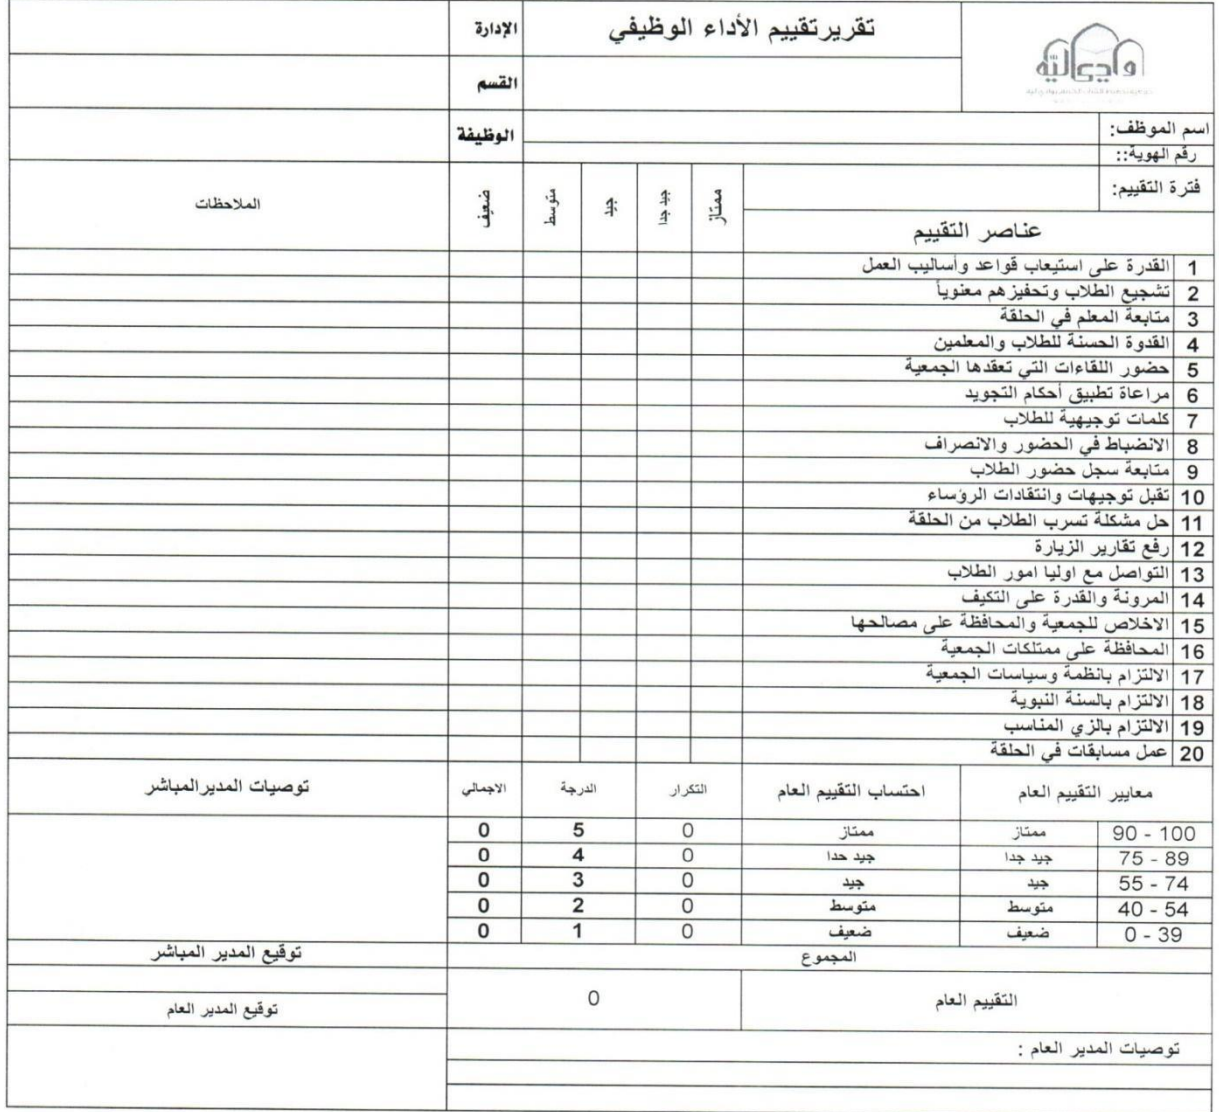 وادي ليه
تقرير تقييم الأداء الوظيفي
الإدارة
القسم
اسم الموظف:
الوظيفة
رقم الهوية::
فترة التقييم:
عناصر التقييم
ممتاز
جيد جدا
جيد
متوسط
ضعيف
الملاحظات
1 القدرة على استيعاب قواعد وأساليب العمل
2 تشجيع الطلاب وتحفيزهم معنوياً
3 متابعة المعلم في الحلقة
4 القدوة الحسنة للطلاب والمعلمين
5 حضور اللقاءات التي تعقدها الجمعية
6 مراعاة تطبيق أحكام التجويد
7 كلمات توجيهية للطلاب
8 الانضباط في الحضور والانصراف
9 متابعة سجل حضور الطلاب
10 تقبل توجيهات وانتقادات الرؤساء
11 حل مشكلة تسرب الطلاب من الحلقة
12 رفع تقارير الزيارة
13 التواصل مع اوليا امور الطلاب
14 المرونة والقدرة على التكيف
15 الاخلاص للجمعية والمحافظة على مصالحها
16 المحافظة على ممتلكات الجمعية
17 الالتزام بانظمة وسياسات الجمعية
18 الالتزام بالسنة النبوية
19 الالتزام بالزي المناسب
20 عمل مسابقات في الحلقة
معايير التقييم العام احتساب التقييم العام التكرار الدرجة الاجمالي توصيات المديرالمباشر
90 - 100 ممتاز ممتاز 0 5 0
75 - 89 جيد جدا جيد حدا 0 4 0
55 - 74 جيد جيد 0 3 0
40 - 54 متوسط متوسط 0 2 0
0 - 39 ضعيف ضعيف 0 1 0
المجموع توقيع المدير المباشر
التقييم العام 0
توقيع المدير العام
توصيات المدير العام :